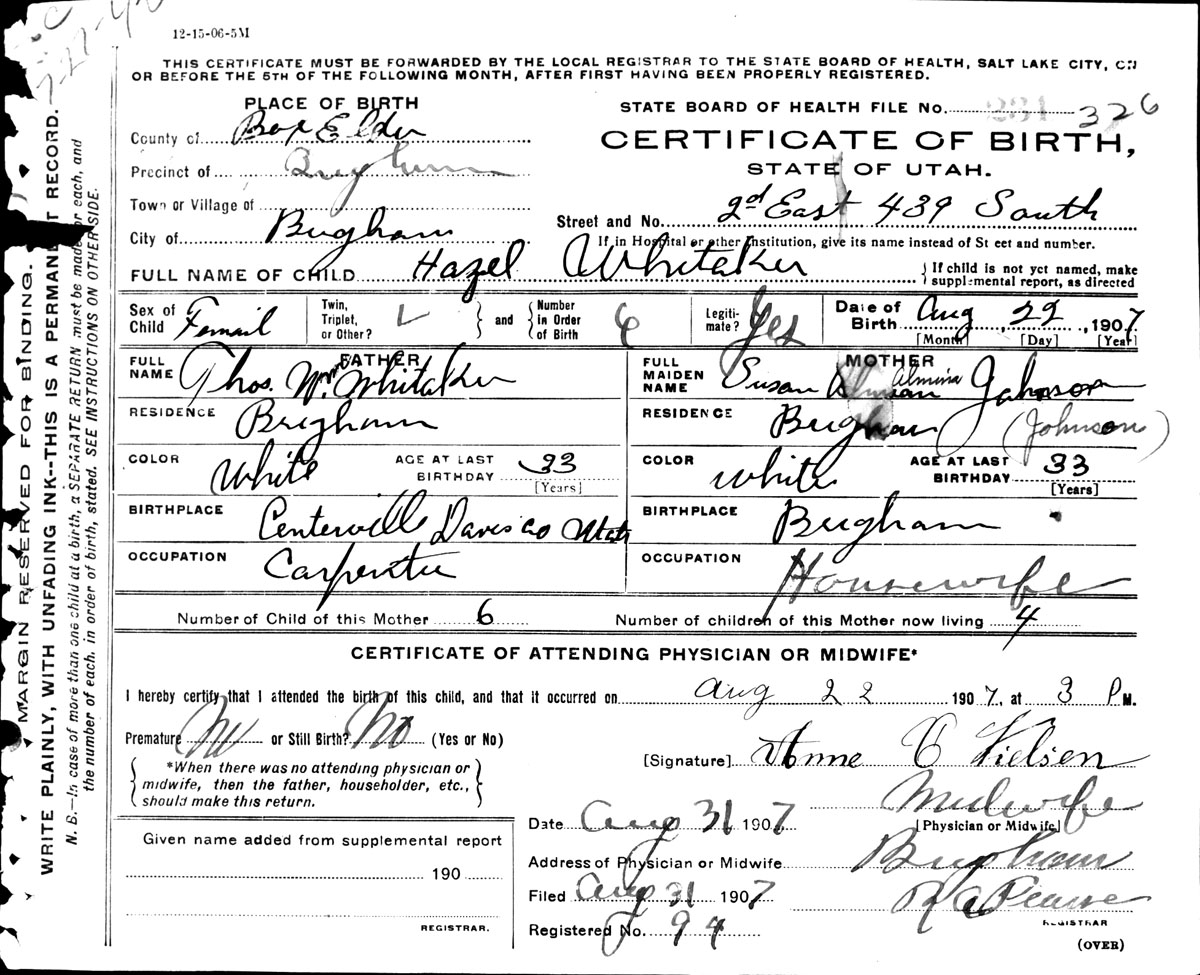 12-15-06-5M
THIS CERTIFICATE MUST BE FORWARDED BY THE LOCAL REGISTRAR TO THE STATE BOARD OF HEALTH, SALT LAKE CITY, ON
OR BEFORE THE 5TH OF THE FOLLOWING MONTH, AFTER FIRST HAVING BEEN PROPERLY REGISTERED.
PLACE OF BIRTH
County of Box Elder
Precinct of Brigham
Town or Village of
City of Brigham
STATE BOARD OF HEALTH FILE No. 326
CERTIFICATE OF BIRTH,
STATE OF UTAH.
Street and No. 2d East 439 South
If in Hospital or other Institution, give its name instead of St eet and number.
FULL NAME OF CHILD Hazel Whitaker
If child is not yet named, make
supplemental report, as directed
Sex of Child Femail
Twin, Triplet, or Other?
and
Number in Order of Birth 6
Legiti-mate? Yes
Date of Birth Aug 22, 1907
[Month] [Day] [Year]
FATHER
FULL NAME Thos. Wm. Whitaker
RESIDENCE Brigham
COLOR White AGE AT LAST BIRTHDAY 33
[Years]
BIRTHPLACE Centerville Davis co Utah
OCCUPATION Carpenter
MOTHER
FULL MAIDEN NAME Susan Almina Johnson
RESIDENCE Brigham (Johnson)
COLOR White AGE AT LAST BIRTHDAY 33
[Years]
BIRTHPLACE Brigham
OCCUPATION Housewife
Number of Child of this Mother 6 Number of children of this Mother now living 4
CERTIFICATE OF ATTENDING PHYSICIAN OR MIDWIFE*
I hereby certify that I attended the birth of this child, and that it occurred on Aug 22 1907, at 3 P M.
Premature No or Still Birth? No (Yes or No)
*When there was no attending physician or
midwife, then the father, householder, etc.,
should make this return.
[Signature] Anne C Nielsen
Midwife
[Physician or Midwife]
Date Aug 31 1907
Address of Physician or Midwife Brigham
Filed Aug 31 1907 R A Pearse
REGISTRAR
Registered No. 94
(OVER)
Given name added from supplemental report
190
REGISTRAR.
MARGIN RESERVED FOR BINDING.
WRITE PLAINLY, WITH UNFADING INK--THIS IS A PERMANENT RECORD.
N. B.—In case of more than one child at a birth, a SEPARATE RETURN must be made for each, and
the number of each, in order of birth, stated. SEE INSTRUCTIONS ON OTHER SIDE.